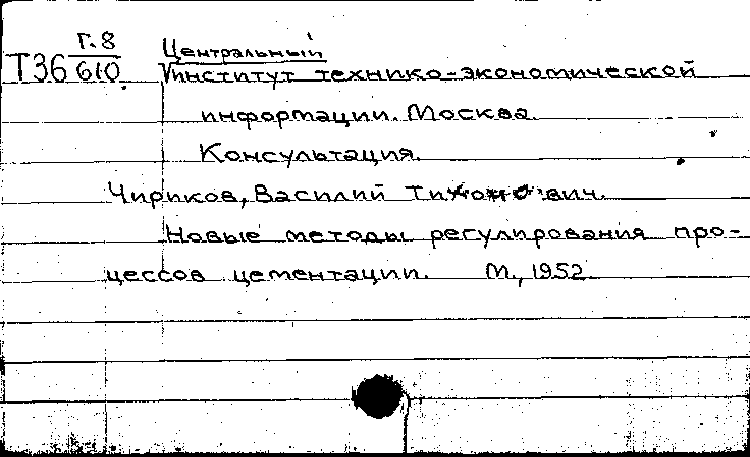 Г.8
Т36 610.
Центральный
Институт технико-экономической
информации. Москва.
Консультация.
Чириков, Василий Тихонович.
Новые методы регулирования про-
цессов цементации. М., 1952